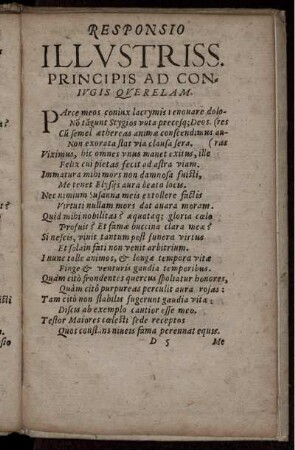 RESPONSIO
ILLVSTRISS.
PRINCIPIS AD CON-
IVGIS QVERELAM.
PArce meos coniux lacrymis renouare dolo-
Nō tāgunt Stygios vota precesq; Deos. (res
Cū semel æthereas animæ conscendimus au-
Non exorata stat via clausa sera. (ras
Viximus, hic omnes vnus manet exitus, ille
Felix cui pietas fecit ad astra viam,
Immatura mihi mors non damnosa fuicti,
Me tenet Elysijs aura beata locis.
Nec nimium Susanna meis extollere factis
Virtuti nullam mors dat auara moram.
Quid mihi nobilitas? æquataq; gloria cælo
Profuit? Et famæ buccina clara meæ?
Si nescis, viuit tantum post funera virtus
Et solam fati non venit arbitrium.
I nunc tolle animos, & longæ tempora vitæ
Finge & venturis gaudia temporibus.
Quàm citò frondentes quercus spoliatur honores,
Quàm citò purpureas perculit aura rosas:
Tam citò non stabilis fugerunt gaudia vitæ:
Discis ab exemplo cautior esse meo.
Testor Maiores cælesti sede receptos
Quos niueis fama perennat equis.
D 5 Me